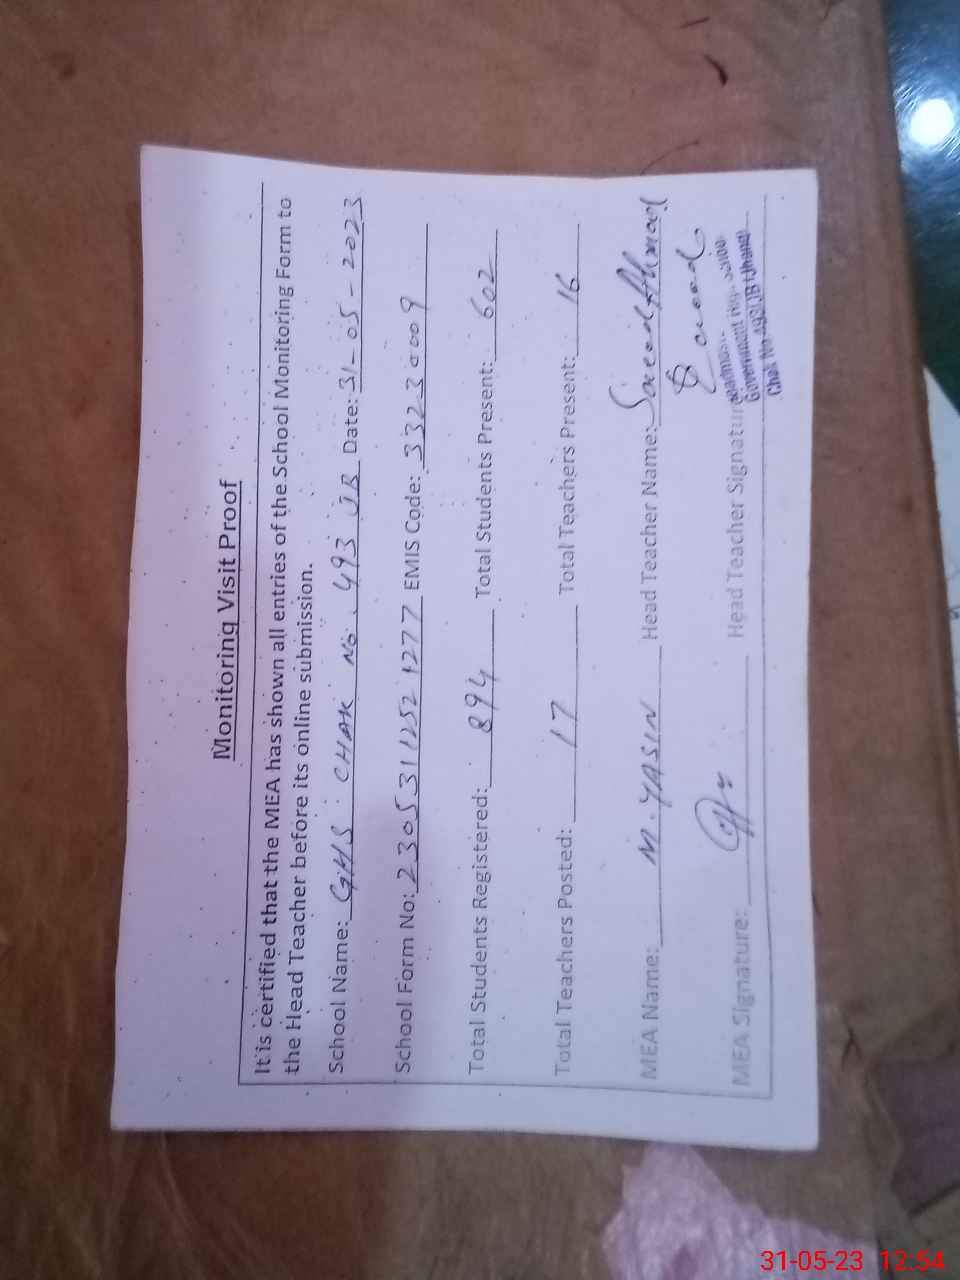 Monitoring Visit Proof
It is certified that the MEA has shown all entries of the School Monitoring Form to
the Head Teacher before its online submission.
School Name: GHS CHAK No. 493 JB Date: 31-05-2023
School Form No: 23053112521277 EMIS Code: 33230009
Total Students Registered: 894 Total Students Present: 602
Total Teachers Posted: 17 Total Teachers Present: 16
MEA Name: M.YASIN Head Teacher Name: Saeed Ahmad
MEA Signature: Head Teacher Signature
Government High School
Chak No 493/JB (Jhang)
31-05-23 12:54